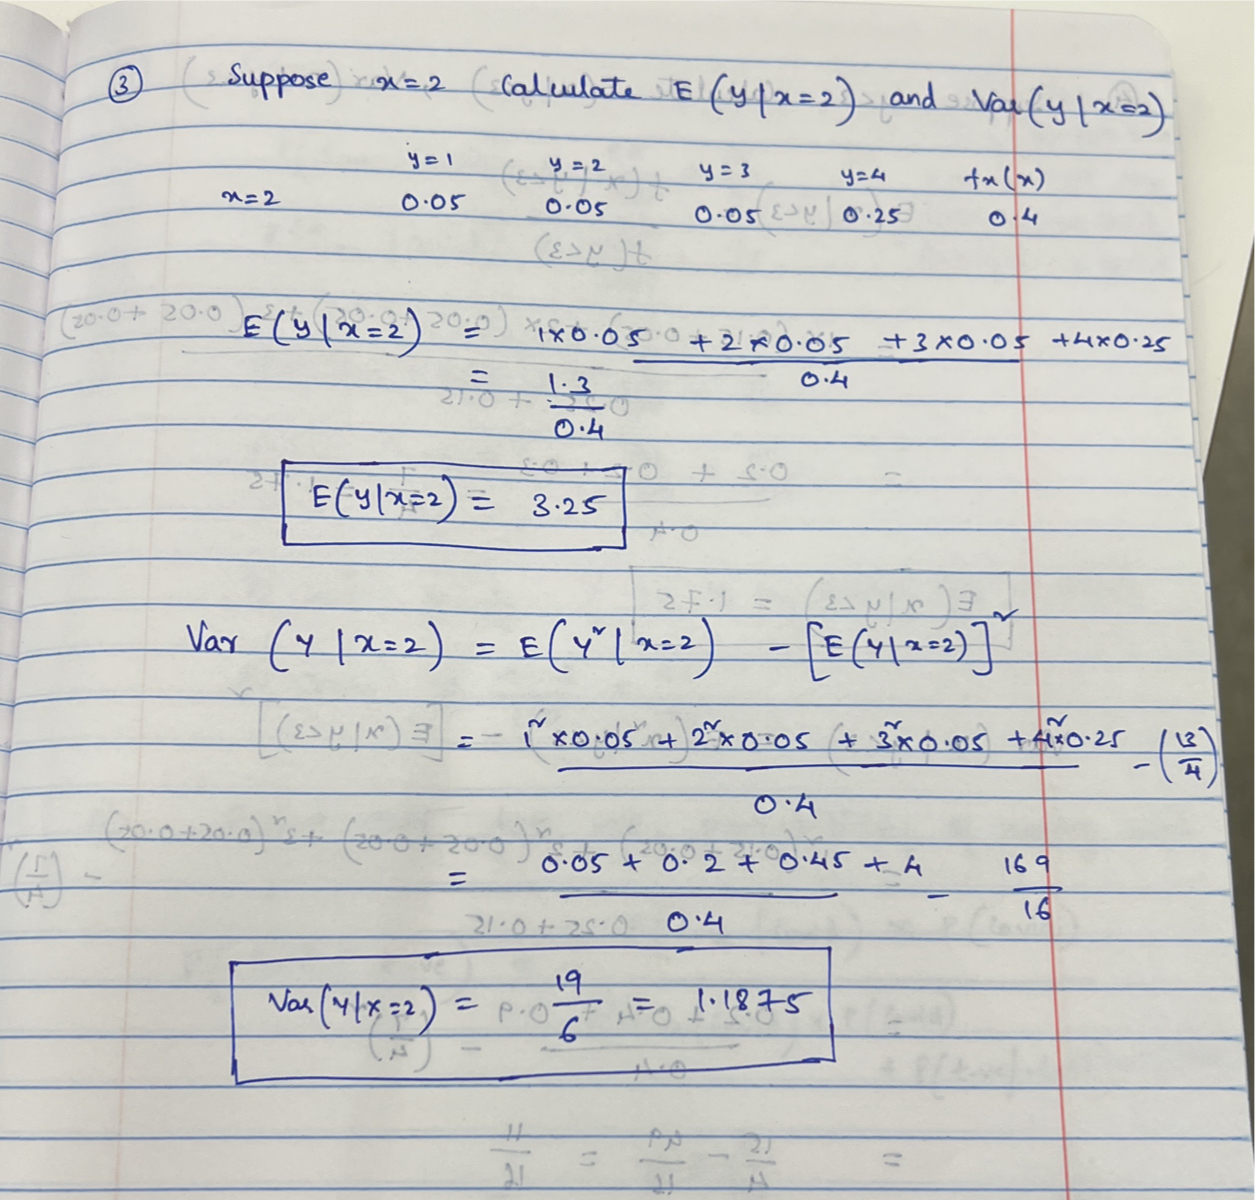 ③ Suppose x=2 Calculate E(y|x=2) and Var(y|x=2)
y=1 y=2 y=3 y=4 fx(x)
x=2 0.05 0.05 0.05 0.25 0.4
E(y|x=2) = 1x0.05 + 2x0.05 + 3x0.05 + 4x0.25
0.4
= 1.3
0.4
E(y|x=2) = 3.25
Var (Y|x=2) = E(Y²|x=2) - [E(Y|x=2)]²
= 1²x0.05 + 2²x0.05 + 3²x0.05 + 4²x0.25 - (13/4)
0.4
= 0.05 + 0.2 + 0.45 + 4 - 169/16
0.4
Var(Y|x=2) = 19/6 = 1.1875